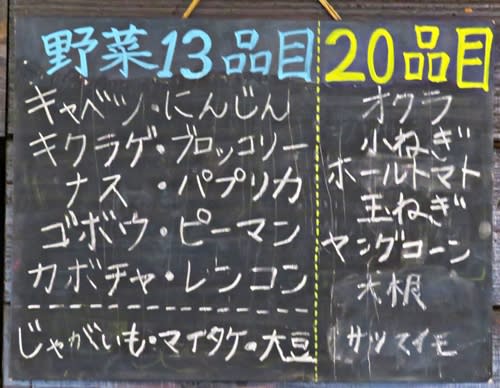 野菜13品目
キャベツ・にんじん
キクラゲ・ブロッコリー
ナス・パプリカ
ゴボウ・ピーマン
カボチャ・レンコン
じゃがいも・マイタケ・大豆
20品目
オクラ
小ねぎ
ホールトマト
玉ねぎ
ヤングコーン
大根
サツマイモ